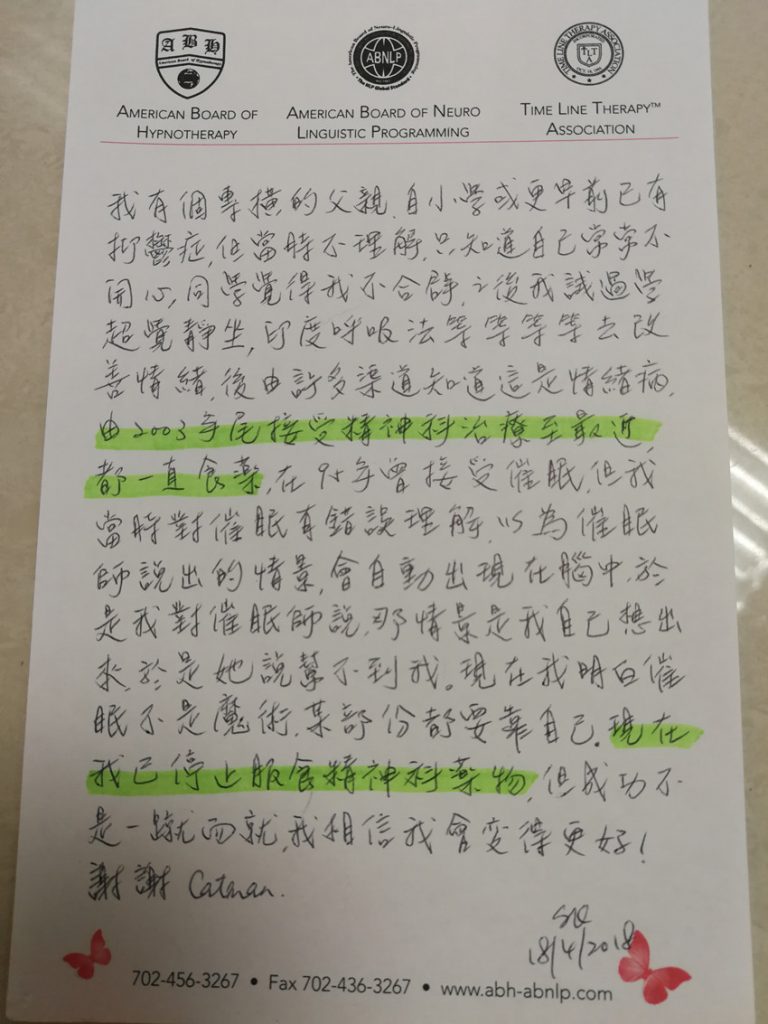 ABH
American Board of Hypnotherapy
The American Board of Neuro-Linguistic Programming
ABNLP
The NLP Global Standard
TIME LINE THERAPY ASSOCIATION
INCORPORATED
TLTA
AMERICAN BOARD OF
HYPNOTHERAPY
AMERICAN BOARD OF NEURO
LINGUISTIC PROGRAMMING
TIME LINE THERAPY™
ASSOCIATION
我有個專橫的父親,自小学或更早前已有
抑鬱症,但當時不理解,只知道自己常常不
開心,同學覺得我不合群,之後我試過學
超覺靜坐,印度呼吸法等等等等去改
善情緒,後由許多渠道知道這是情緒病,
由2003年尾接受精神科治療至最近,
都一直食藥,在95年曾接受催眠,但我
當時對催眠有錯誤理解,以為催眠
師說出的情景,會自動出現在腦中,於
是我對催眠師說,那情景是我自己想出
來,於是她說幫不到我。現在我明白催
眠不是魔術,某部份都要靠自己,現在
我已停止服食精神科藥物,但成功不
是一蹴而就,我相信我會变得更好!
謝謝
18/4/2018
702-456-3267 • Fax 702-436-3267 • www.abh-abnlp.com